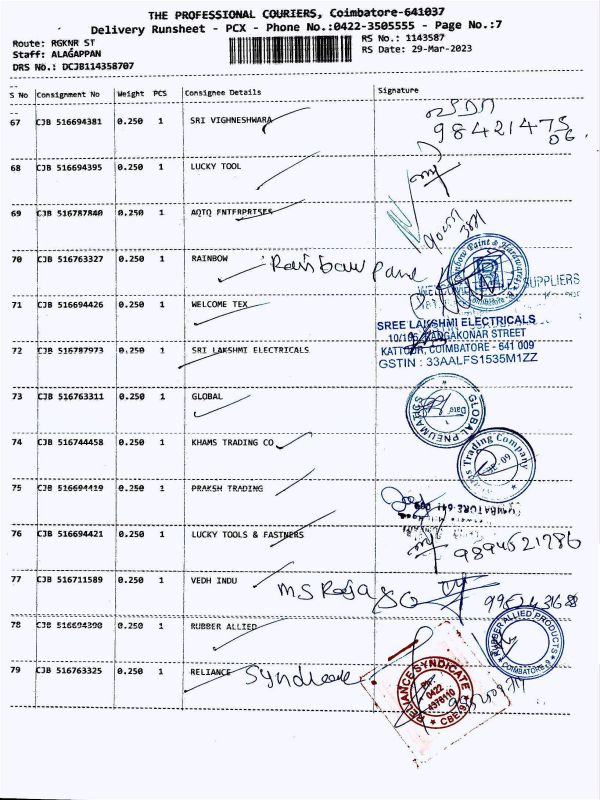 THE PROFESSIONAL COURIERS, Coimbatore-641037
Delivery Runsheet - PCX - Phone No.:0422-3505555 - Page No.:7
Route: RGKNR ST
RS No.: 1143587
Staff: ALAGAPPAN
RS Date: 29-Mar-2023
DRS No.: DCJB114358707
S No Consignment No Weight PCS Consignee Details Signature
67 CJB 516694381 0.250 1 SRI VIGHNESHWARA
68 CJB 516694395 0.250 1 LUCKY TOOL
69 CJB 516787840 0.250 1 AQTQ ENTERPRISES
70 CJB 516763327 0.250 1 RAINBOW
Rainbow Paint & Hardwares
SUPPLIERS
71 CJB 516694426 0.250 1 WELCOME TEX
SREE LAKSHMI ELECTRICALS
RANGAKONAR STREET
KATTOOR, COIMBATORE - 641 009
GSTIN : 33AALFS1535M1ZZ
72 CJB 516787973 0.250 1 SRI LAKSHMI ELECTRICALS
73 CJB 516763311 0.250 1 GLOBAL
GLOBAL PNEUMATICS
Date
74 CJB 516744458 0.250 1 KHAMS TRADING CO
Trading Company
75 CJB 516694419 0.250 1 PRAKSH TRADING
COIMBATORE-641
76 CJB 516694421 0.250 1 LUCKY TOOLS & FASTNERS
9894521786
77 CJB 516711589 0.250 1 VEDH INDU
78 CJB 516694390 0.250 1 RUBBER ALLIED
RUBBER ALLIED PRODUCTS
COIMBATORE-9
79 CJB 516763325 0.250 1 RELIANCE Syndicate
RELIANCE SYNDICATE
PH
0422
4376110